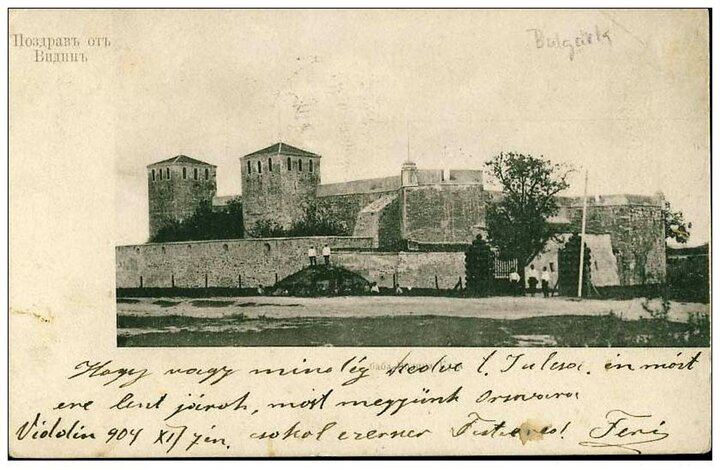 Поздравъ отъ
Видинъ
Bulgaria
Hogy vagy mindég kedve l. Julcsa. én most
erre lent járok, most megyünk Orsovára
Viddin 904 XI/7én. csókol ezerszer Feri